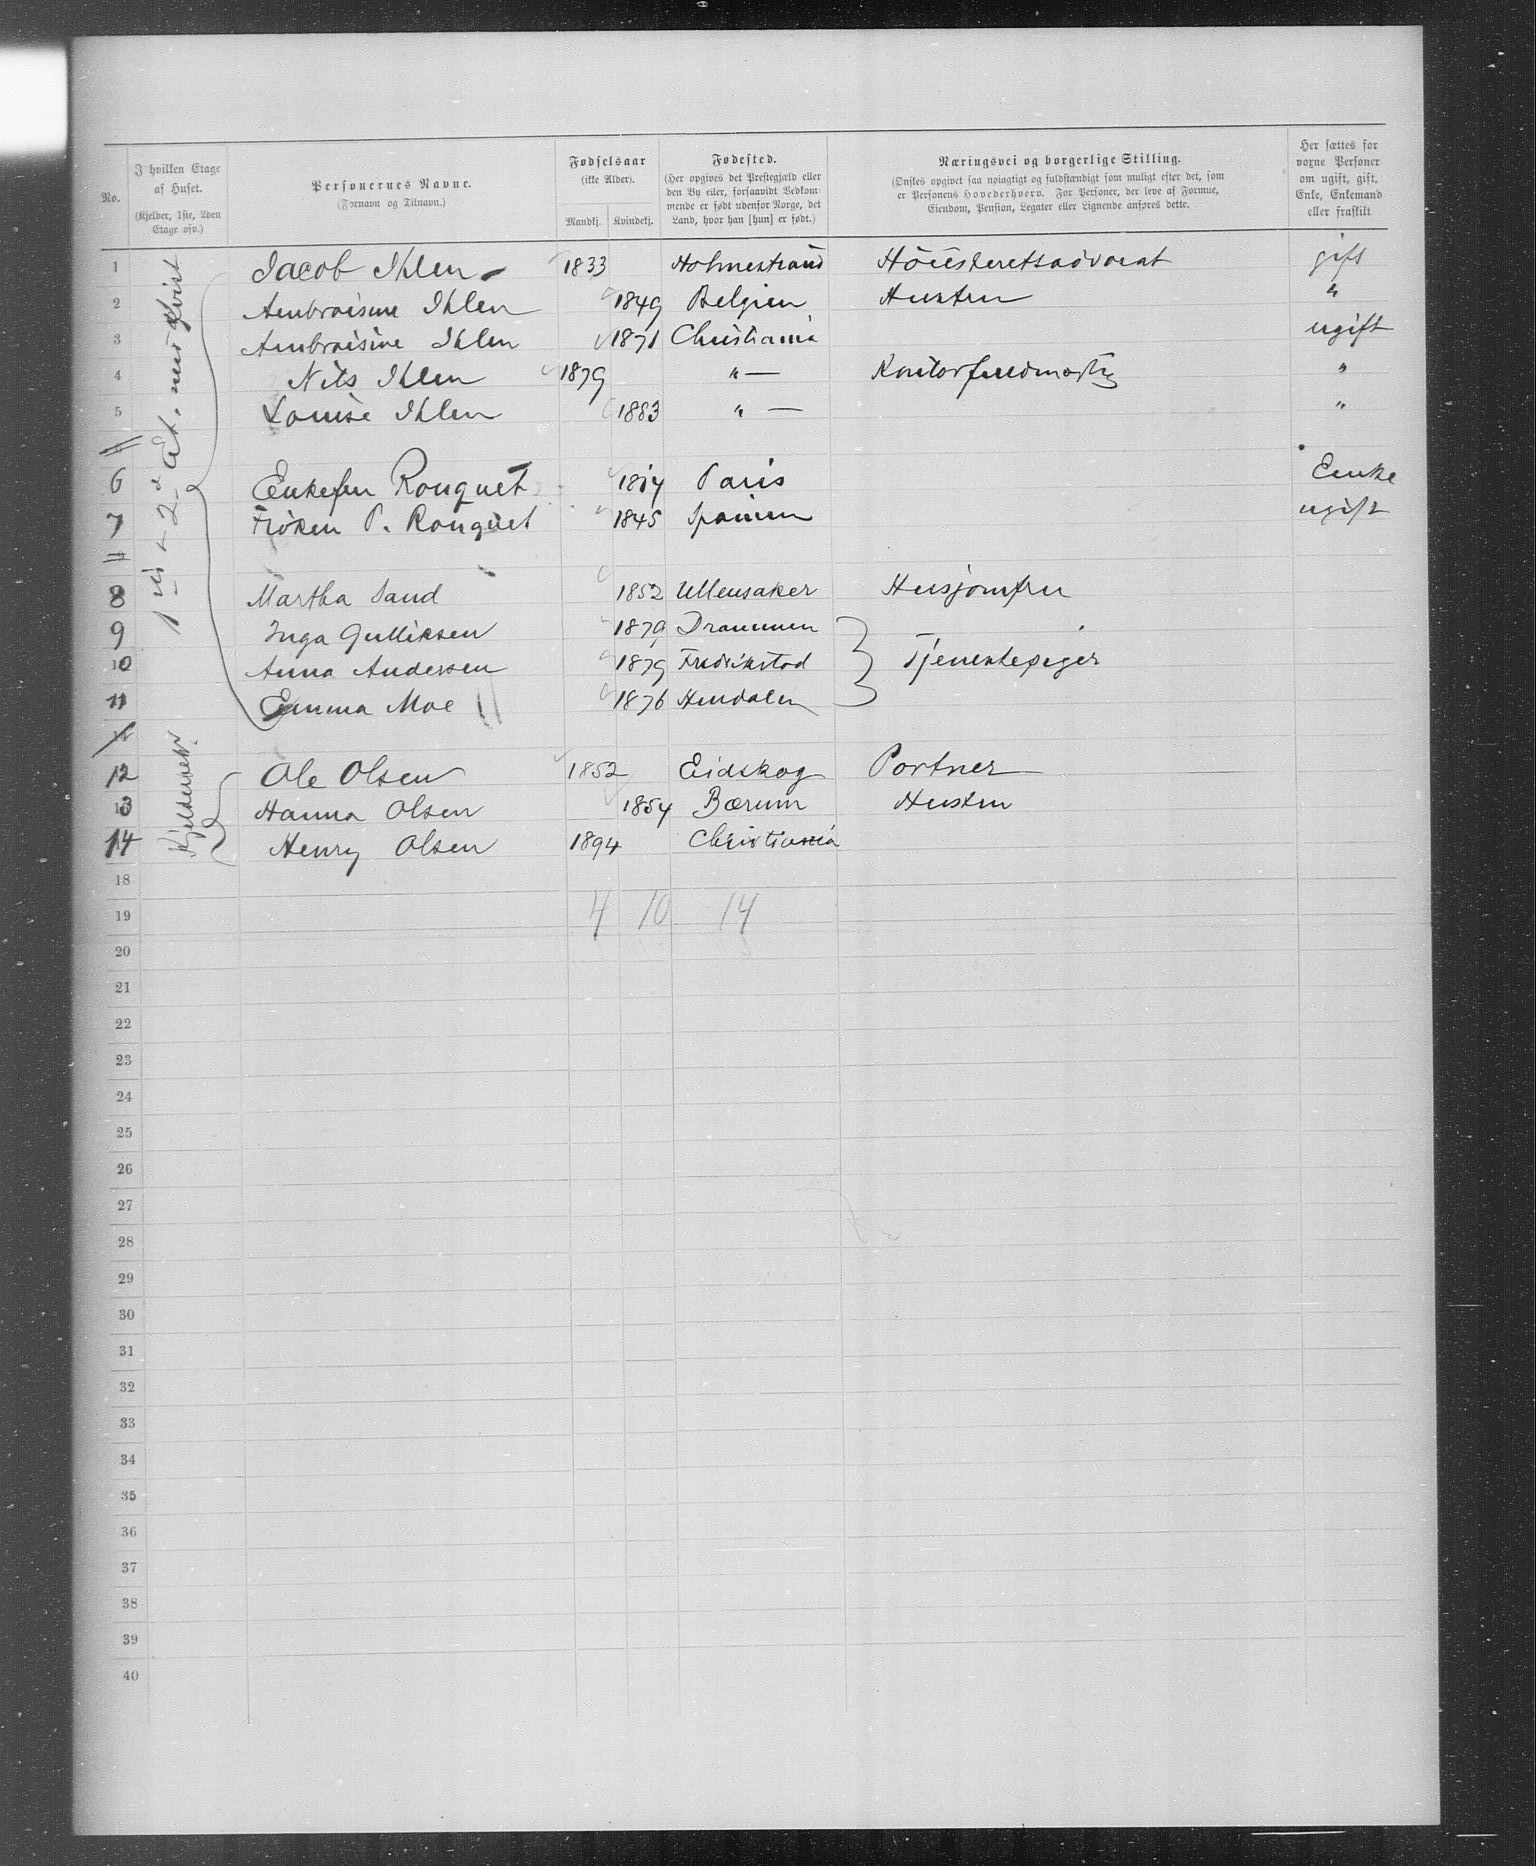 No. I hvilken Etage af Huset. (Kjelder, 1ste, 2den Etage osv.) Personernes Navne. (Fornavn og Tilnavn.) Fødselsaar (ikke Alder). Mandkj. Kvindekj. Fødested. (Her opgives det Prestegjæld eller den By eller, forsaavidt Vedkommende er født udenfor Norge, det Land, hvor han [hun] er født.) Næringsvei og borgerlige Stilling. (Ønskes opgivet saa nøiagtigt og fuldstændigt som muligt efter det, som er Personens Hovederhverv. For Personer, der leve af Formue, Eiendom, Pension, Legater eller Lignende anføres dette. Her sættes for voxne Personer om ugift, gift, Enke, Enkemand eller fraskilt
1ste - 2d Et. med Kvist
1 Jacob Ihlen 1833 Holmestrand Høiesteretsadvocat gift
2 Ambroisine Ihlen 1849 Belgien Hustru "
3 Ambroisine Ihlen 1871 Christiania ugift
4 Nils Ihlen 1879 " — "
5 Louise Ihlen 1883 " — "
6 Enkefru Rouquet Paris Enke
7 Frøken P. Rouquet 1845 Spanien ugift
8 Martha Sand 1852 Ullensaker Husjomfru
9 Inga Gulliksen 1879 Drammen
10 Anna Andersen 1879 Fredrikstad Tjenestepiger
11 Emma Moe 1876
12 Ole Olsen 1852 Eidskog Portner
13 Hanna Olsen 1854 Bærum Hustru
14 Henry Olsen 1894 Christiania
18
19 4 10 14
20
21
22
23
24
25
26
27
28
29
30
31
32
33
34
35
36
37
38
39
40